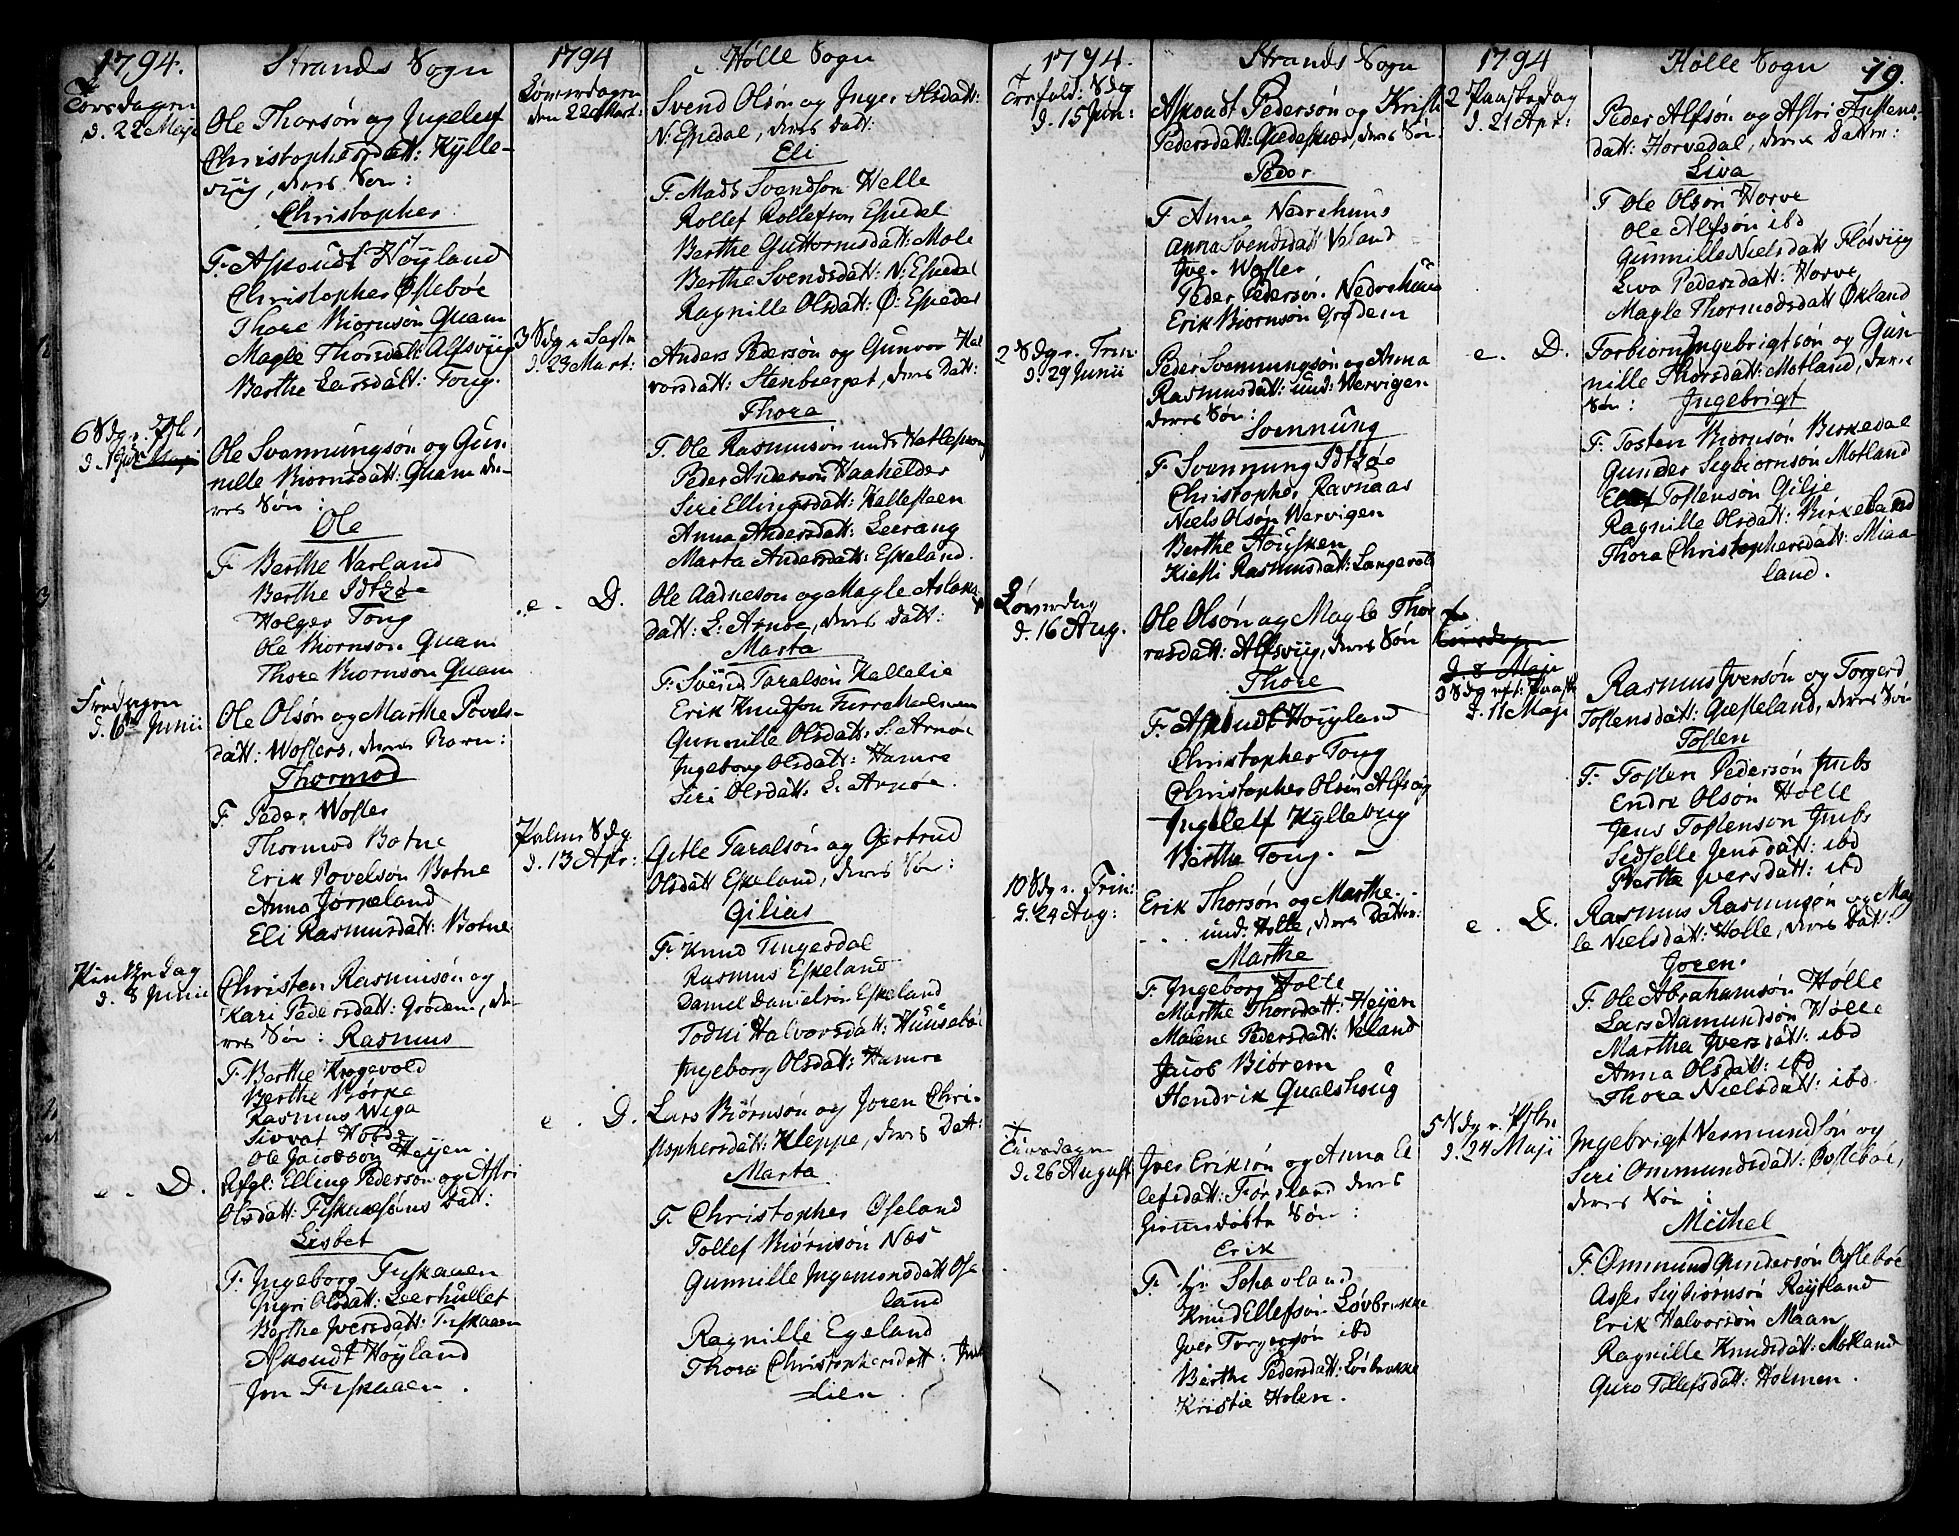 1794.
Strands Sogn
Torsdagen
d. 22 Maji
Ole Thorsøn og Ingeleef
Christophersdatt: Kylle-
viig, deres Søn:
Christopher
F. Askoudt Høyland
Christopher Østebøe
Thore Biornsøn Quam
Magle Thorsdatt: Alfsviig
Berthe Larsdatt: Tong.
Ole Svannungsøn og Gun-
nille Biornsdatt: Quam de-
res Søn:
Ole
F. Berthe Varland
Berthe Idtzøe
Holger Tong
Ole Biornsøn Quam
Thore Biornson Quam
Fredagen
d. 6te Junii
Ole Olsøn og Marthe Povels-
datt: Wosters, deres Barn:
Thormod
F. Peder Woster
Thormod Botne
Erik Povelsøn Botne
Anna Jørpeland
Eli Rasmusdatt: Botne
d. 8 Junii
Christen Rasmusøn og
Kari Pedersdatt: Grødem, de-
res Søn: Rasmus
F. Berthe Krogevold
Berthe Biørke
Rasmus Wiga
Ole Jacobson Heyen.
e. D.
Afgl: Elling Pederson og Astri
Olsdatt: Datt:
Lisbet
F. Ingeborg Fiskaaen
Ingri Olsdatt: Leerhullet
Berthe Iversdatt: Fiskaaen
Askoudt Høyland
Jon Fiskaaen.
1794
Hølle Sogn
Løverdagen
den 22 Mart:
Svend Olsøn og Inger Olsdatt:
N: Espedal, deres Datt:
Eli
F. Mads Svendson Helle
Rollef Rollefson Espedal
Berthe Guttormsdatt: Mole
Berthe Svendsdatt: N: Espedal
Ragnille Olsdatt: Ø: Espedal
3 Sdg i Fastn
d. 23 Mart:
Anders Pedersøn og Gunvor Hal
vorsdatt: Stenberget, deres Datt:
Thora
F. Ole Rasmuson
Peder Anderson Haahelder
Siri Ellingsdatt: Hallesteen
Anna Andersdatt: Leerang
Marta Andersdatt: Eskeland.
e. D.
Ole Aadneson og Magle Aslaks
datt: L: Arnøe, deres Datt:
Marta
F. Svend Taralsøn Hallelie
Erik Knudson
Gunnille Olsdatt: S: Arnøe
Ingeborg Olsdatt: Hamre
Siri Olsdatt: L. Arnøe.
Palme Sdg
d. 13 Apr:
Gitle Taralsøn og Giertrud
Olsdatt Eskeland, deres Søn:
Gilias
F. Knud Tingesdal
Rasmus Eskeland
Daniel Danielsøn Eskeland
Todni Halvorsdatt: Hunsebøe
Ingeborg Olsdatt: Hamre
e. D.
Lars Biørnsøn og Joren Chri-
stophersdatt: Kleppe, deres Datt:
Marta
F. Christopher Øseland
Tollef Biørnsøn Næs
Gunnille Ingemonsdatt Øse
land
Ragnille Egeland
Thora Christophersdatt:
lien.
1794.
Strands Sogn
Trefold: Sdg
d. 15 Jun:
Askoudt Pedersøn og Kristi
Pedersdatt: deres Søn
Peder
F. Anna Nedrehuus
Anna Svendsdatt Veland
Iver Woster
Peder Pedersøn Nedrehuus
Erik Biornsøn Grødem
2 Sdg e. Trin:
d. 29 Junii
Peder Svennungsøn og Anna
Rasmusdatt: und: Wervigen
deres Søn:
Svennung
F. Svennung Idtzøe
Christopher Ravnaas
Niels Olsøn Wervigen
Berthe Housken
Kisti Rasmusdatt: Langevoll
Løverdag
d. 16 Aug.
Ole Olsøn og Magle Thor
rasdatt: Alfsviig, deres Søn
Thore
F. Askoudt Høyland
Christopher Tong
Christopher Olsøn Alfsviig
Ingeleff Kylleviig
Berthe Tong.
10 Sdg e. Trin:
d. 24 Aug:
Erik Thorsøn og Marthe
und: Holle, deres Datter:
Marthe
F. Ingeborg Holle
Marthe Thorsdatt: Heyen
Malene Pedersdatt: Veland
Jacob Biørem
Hendrik Qualshoug
Tirsdagen
d. 26 August
Iver Eriksøn og Anna El
lefsdatt: Førsland deres
Søn:
Erik
F. Hr Schavland
Knud Ellefsøn Løvbrække
Iver Torgersøn ibd
Berthe Pedersdatt: Løvbrække
Kristie Holen.
1794
Hølle Sogn
19.
2 Paaskedag
d. 21 Apr:
Peder Alfsøn og Astri Austens
datt: Horvedal, deres Datter:
Liva
F. Ole Olsøn Horve
Ole Alfsøn ibd
Gunnille Nielsdatt Flosviig
Liva Pedersdatt: Horve
Magle Thormodsdatt Økland
e. D.
Torbiorn Ingebrigtsøn og Gun-
nille Thorsdatt: Motland, deres
Søn: Ingebrigt
F. Tosten Biornsøn Birkedal
Gunder Sigbiornsøn Motland
Tostensøn Gilje
Ragnille Olsdatt: Birkeland
Thora Christophersdatt: Miaa
land.
Torsdagen
d. 8 Maji
3 Sdg eft: Paask
d. 11 Maji
Rasmus Iversøn og Torgerd
Tostensdatt: Giesteland, deres Søn
Tosten
F. Tosten Pedersøn Imbs
Endre Olsøn Holle
Jens Tostenson Imbs
Sidselle Jensdatt: ibd
Berthe Iversdatt: ibd
e. D.
Rasmus Rasmusøn og Mag
le Nielsdatt: Holle, deres Datt:
Joren.
F. Ole Abrahamsøn Hølle
Lars Aamundsøn Hølle
Martha Iversdatt: ibd
Anna Olsdatt: ibd
Thora Nielsdatt: ibd.
5 Sdg e. Pask:
d. 24 Maji
Ingebrigt Vermundsøn og
Siri Ommundsdatt: Østebøe,
deres Søn:
Michel
F. Ommund Gundersøn Østebøe
Asser Sigbiørnsøn Røyland
Erik Halvorsøn Maan
Ragnille Knudsdatt: Motland
Guro Tollefsdatt: Holmen.